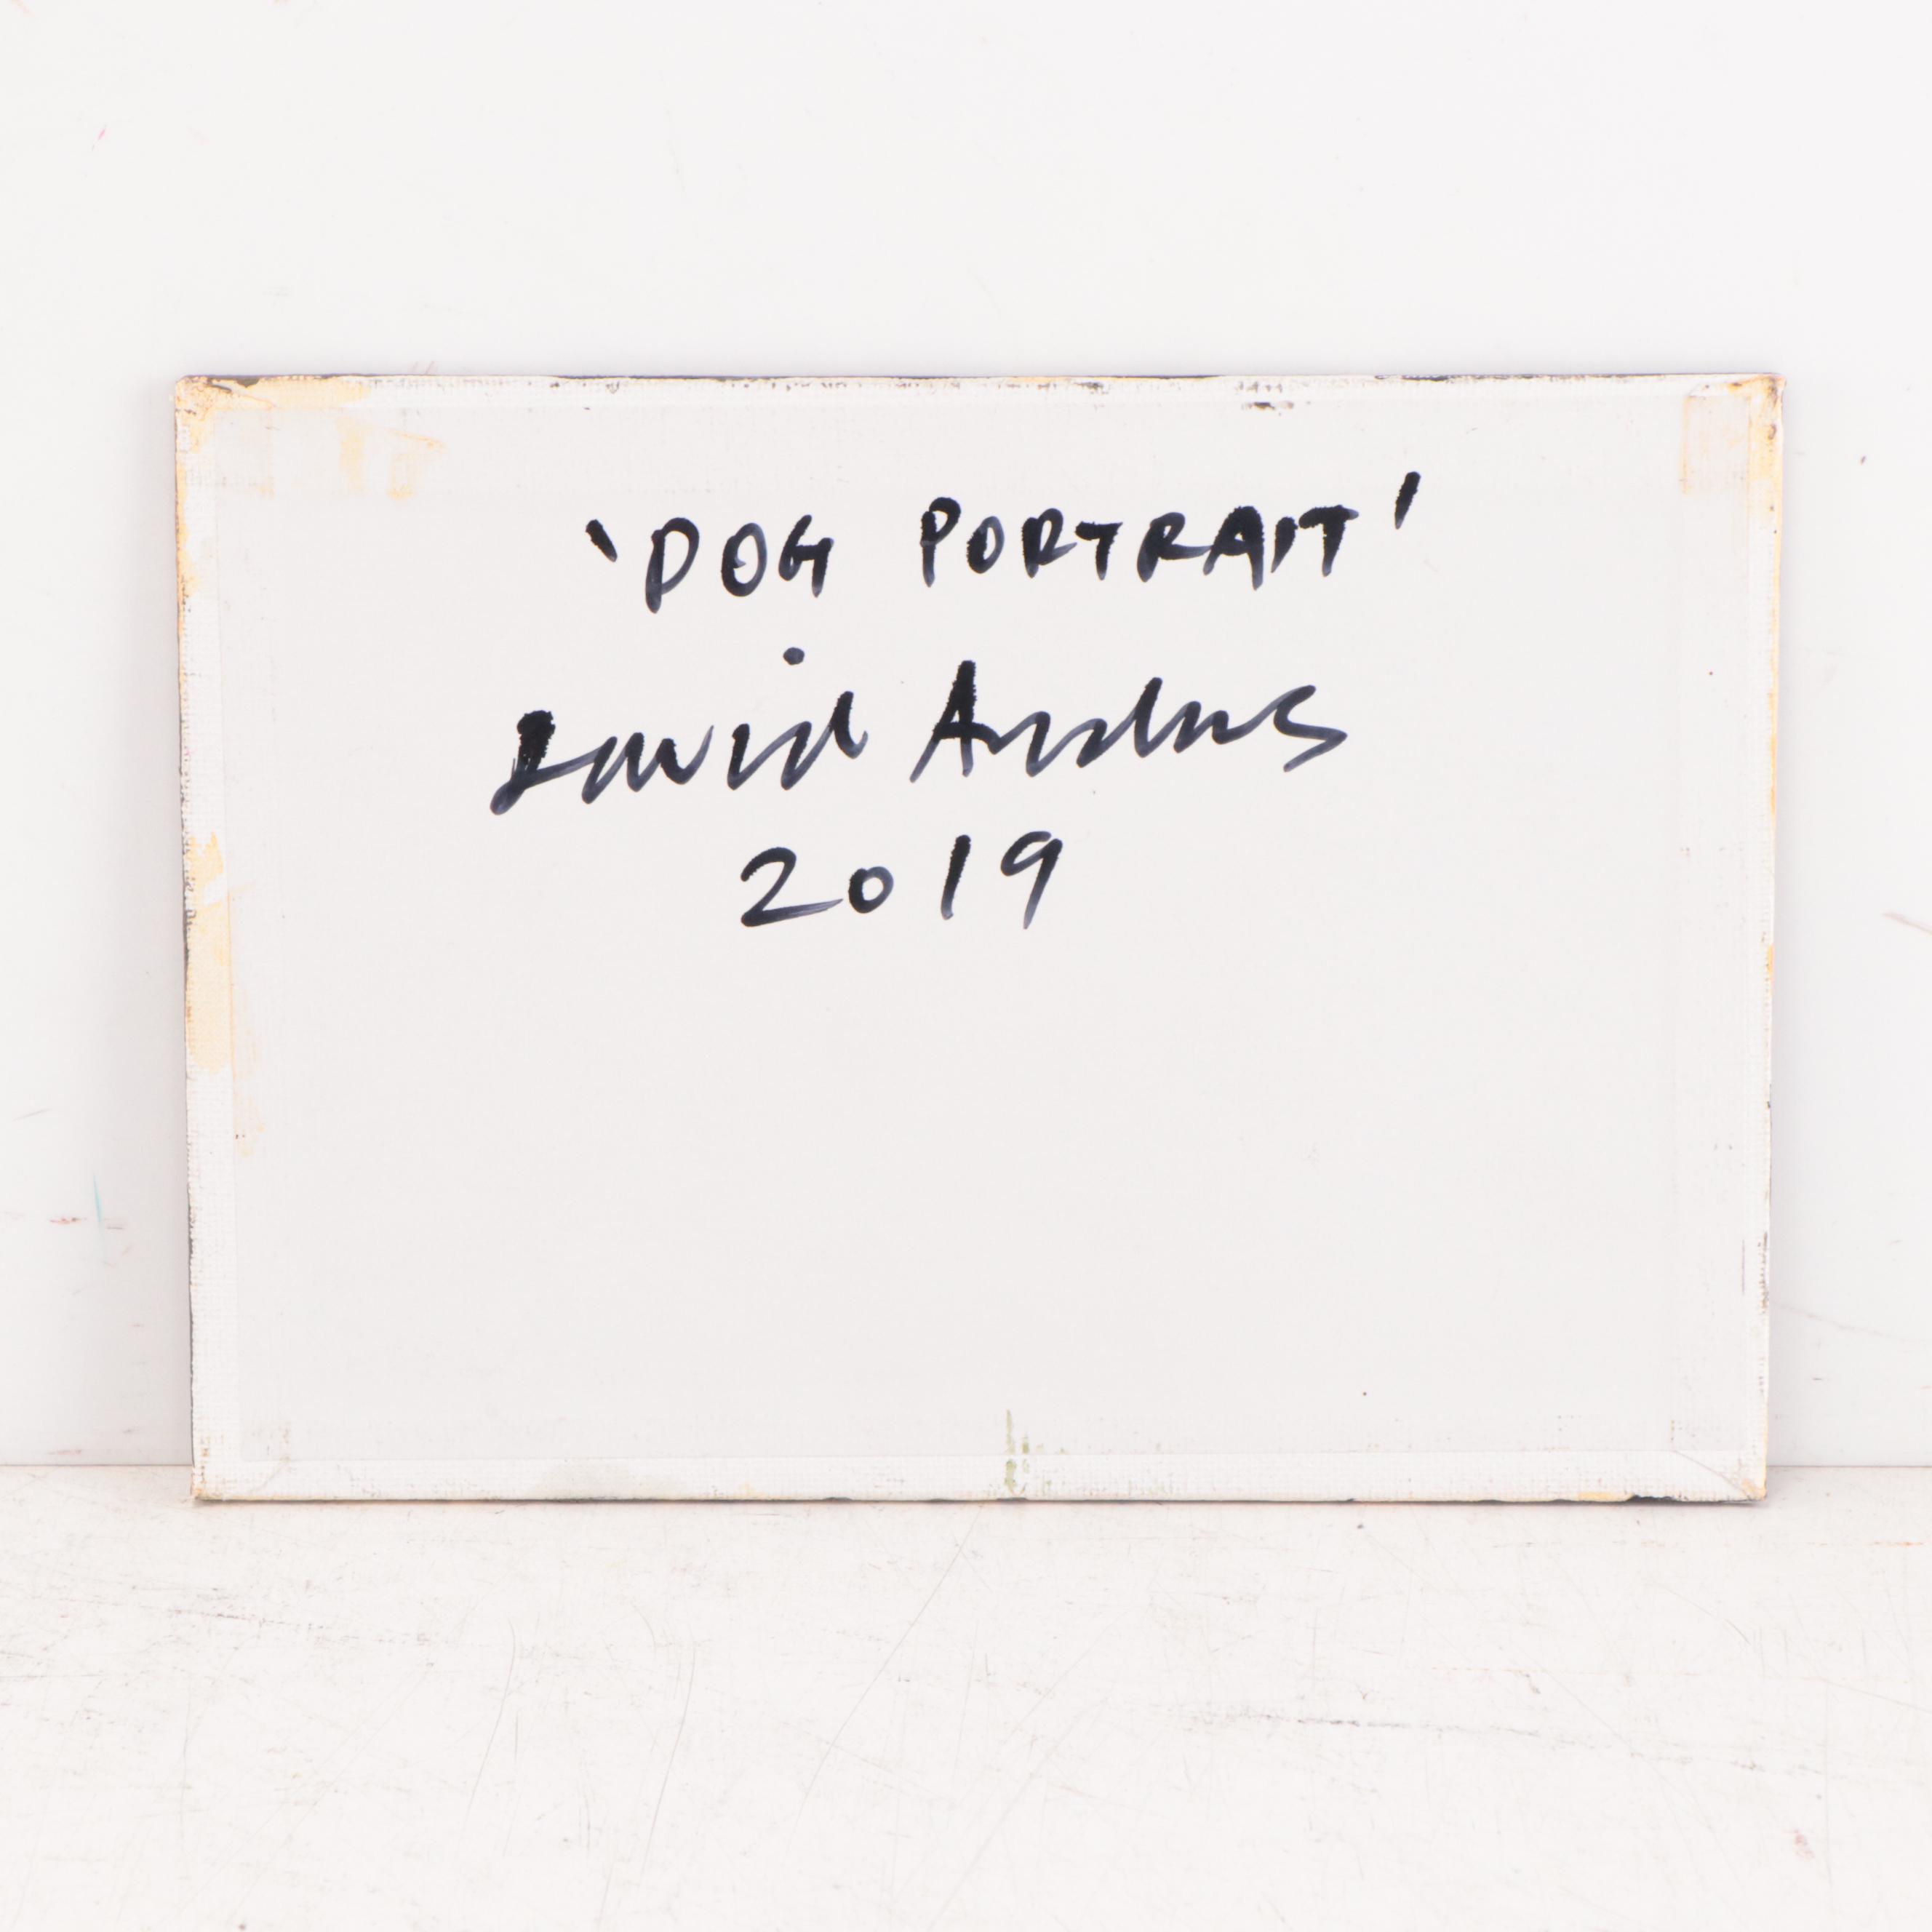 'DOG PORTRAIT'
David
2019